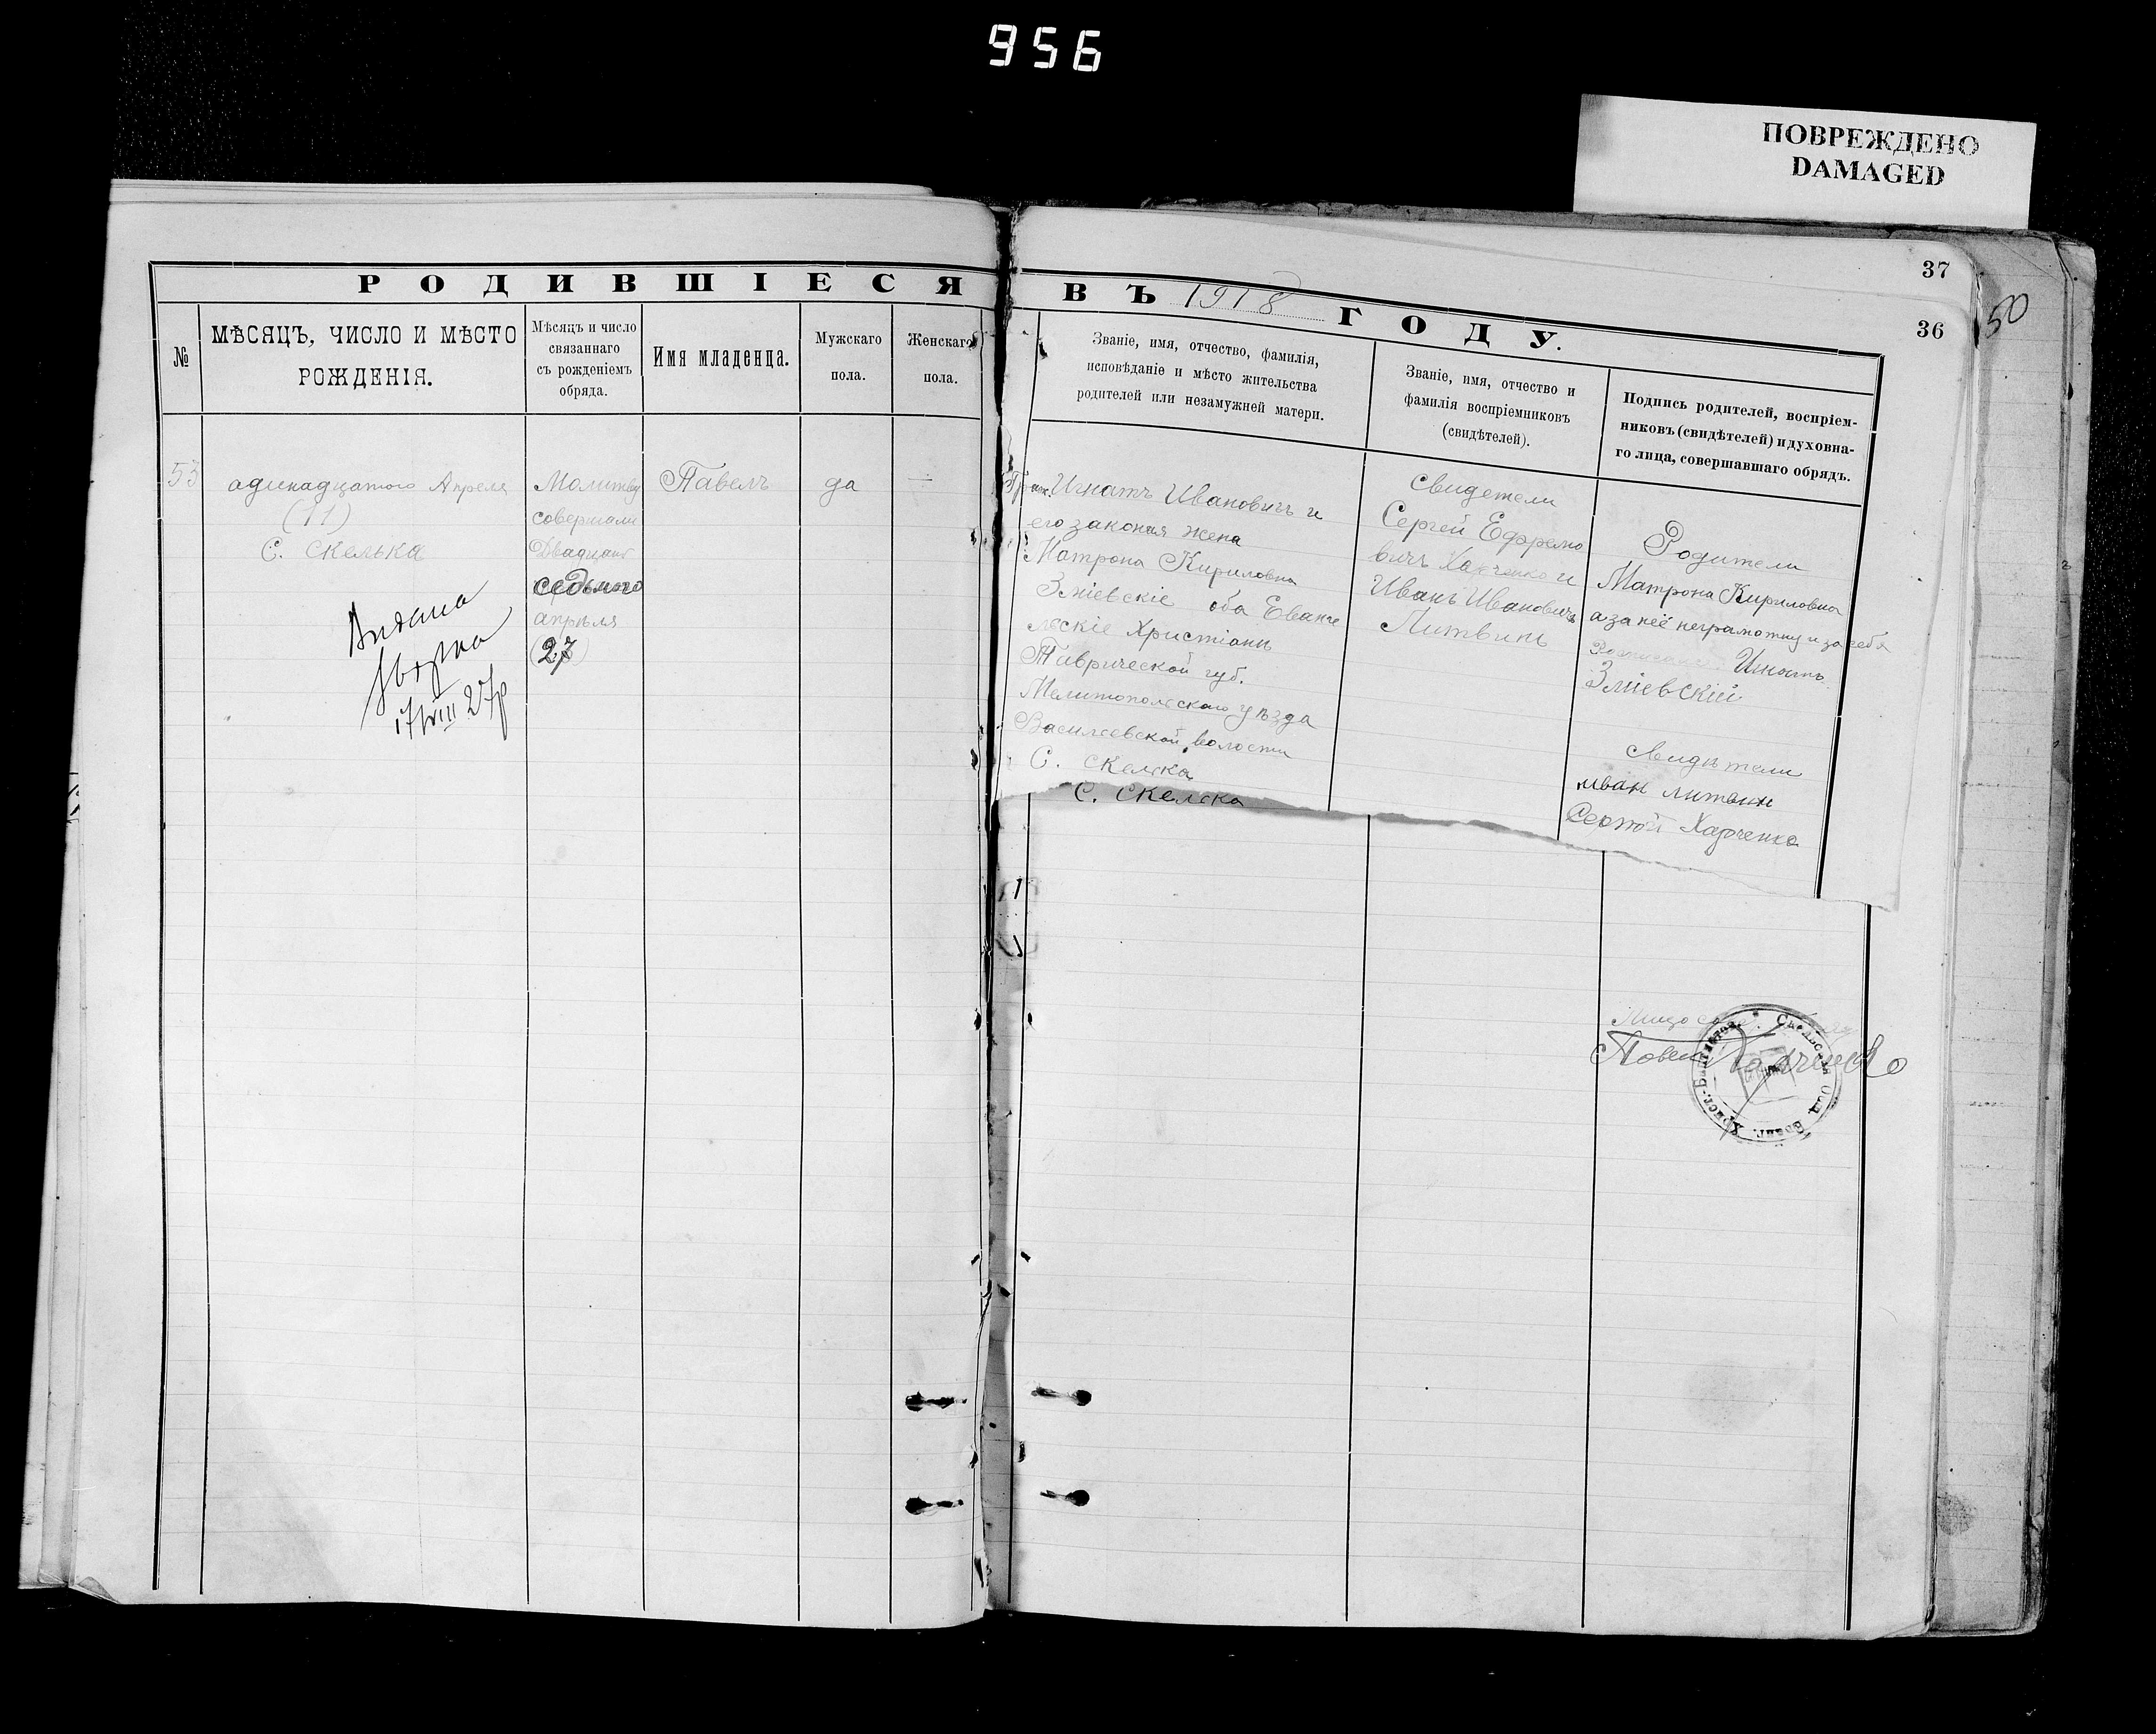 956
ПОВРЕЖДЕНО
DAMAGED
37
50
36
РОДИВШІЕСЯ ВЪ 1918 ГОДУ.
№
МѢСЯЦЪ, ЧИСЛО И МѢСТО
РОЖДЕНІЯ.
Мѣсяцъ и число
связаннаго
съ рожденіемъ
обряда.
Имя младенца.
Мужскаго
пола.
Женскаго
пола.
Званіе, имя, отчество, фамилія,
исповѣданіе и мѣсто жительства
родителей или незамужней матери.
Званіе, имя, отчество и
фамилія воспріемниковъ
(свидѣтелей).
Подпись родителей, воспріем-
никовъ (свидѣтелей) и духовна-
го лица, совершавшаго обрядъ.
53
адинадцатого Апреля
(11)
С. Скелька
Видана
17/VIII 27р
Молитву
совершали
Двадцат
седьмого
апрѣля
(27)
Павелъ
да
—
Игнатъ Ивановичъ и
его законая жена
Матрона Кириловна
Зміевскіе оба Еванге
лскіе Христіани
Таврической губ.
Мелитополского уѣзда
Василевской волости
С. Скелка
С. Скелка
Свидетели
Сергей Ефремо
вичъ Харченко и
Иванъ Ивановичъ
Литвинъ
Родители
Матрона Кириловна
а за неё неграмотну и за себя
Игнатъ
Зміевскій
Свидѣтели
иван литвин
Сергей Харченко
Лицо
Павел Харченко